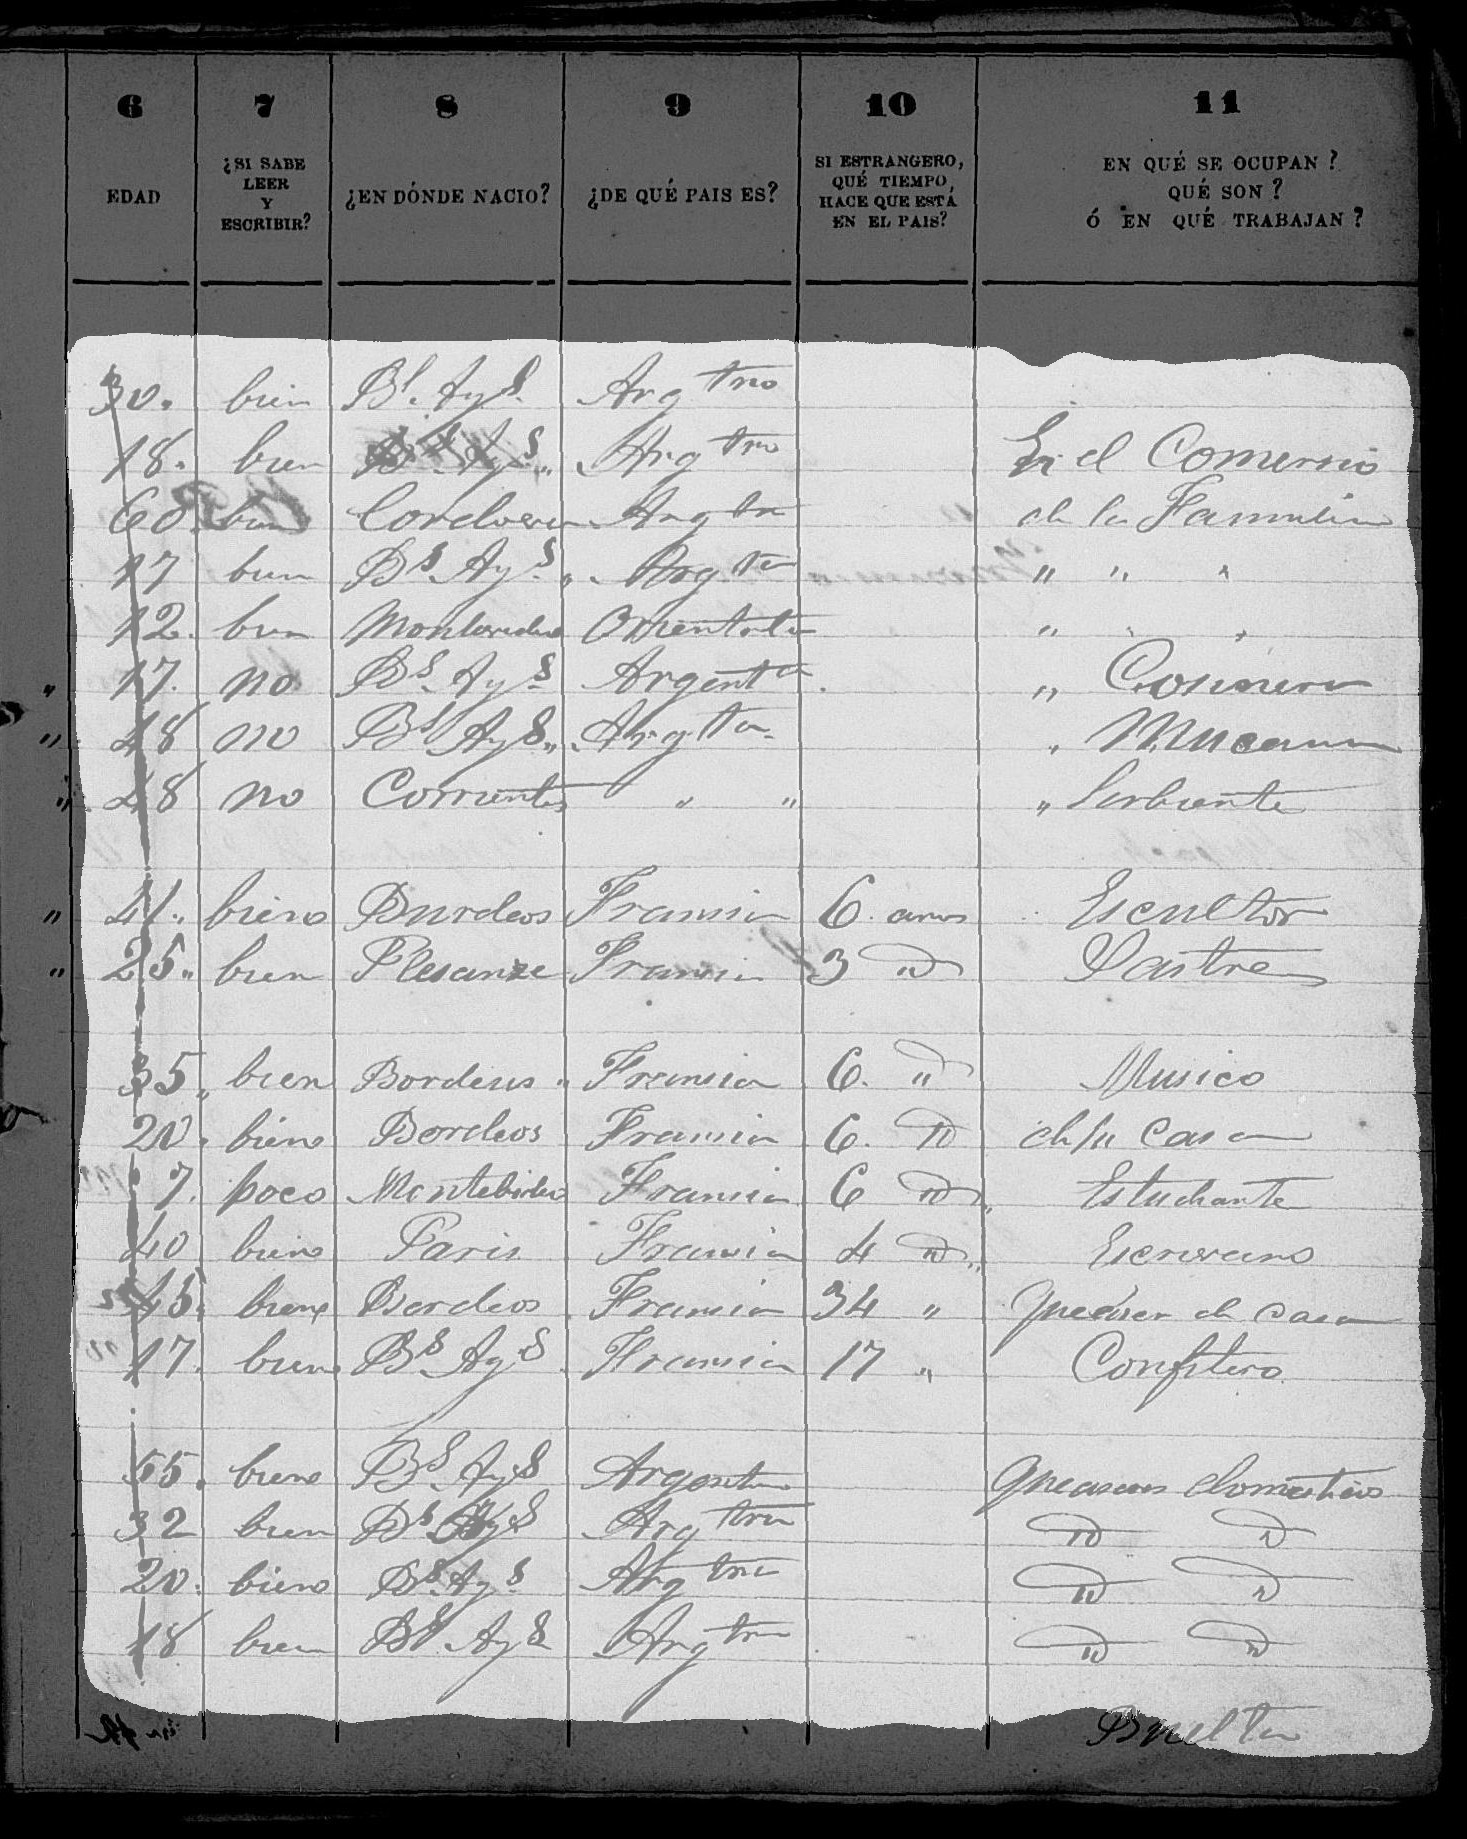 6 7 8 9 10 11
EDAD ¿SI SABE LEER Y ESCRIBIR? ¿EN DÓNDE NACIO? ¿DE QUÉ PAIS ES? SI ESTRANGERO, QUÉ TIEMPO HACE QUE ESTÁ EN EL PAIS? EN QUÉ SE OCUPAN? QUÉ SON? Ó EN QUÉ TRABAJAN?
30. bien Bs. Ays. Argtno
18. bien Bs Ays " Argtno En el Comersio
60 bien Argta de la Familia
17 bien Bs Ays " Argta " " "
12. bien Montevideo Orientala " " "
" 17. no Bs Ays Argenta " Cosinera
" 48 no Bs Ays " Argta " Mucama
" 48 no Corrientes " " " Sirbiente
" 41 " biene Burdeos Fransia 6. años Escultor
" 25 " bien Plesanze Fransia 3 " Sastre
35 " bien Bordeus " Fransia 6. " Musico
20. biene Bordeos Fransia 6. " de su casa
7. poco Montebideo Fransia 6 " Estudiante
40 biene Paris Fransia 4 " Escrivano
45. biene Bordeos Fransia 34 " queaser de casa
17. biene Bs Ays Fransia 17 " Confitero
55. biene Bs Ays Argentn queaseres domesticos
32 bien Bs Ays Argtna " "
20. biene Bs. Ays Argtna " "
18 bien Bs Ays Argtna " "
Buelta